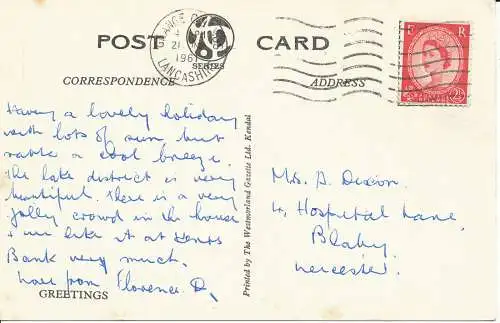 POST CARD
GRANGE O
21
1961
LANCASHIRE
SERIES
E R
CORRESPONDENCE
ADDRESS
Having a lovely holiday
with lots of sun but
a cool breeze.
The lake district is very
beautiful. There is a very
jolly crowd in the house
+ we like it at Kents
Bank very much.
Love from Florence D.
GREETINGS
Printed by The Westmorland Gazette Ltd. Kendal
D. Dixon.
4, Hospital Lane,
Blaby,
Leicester.